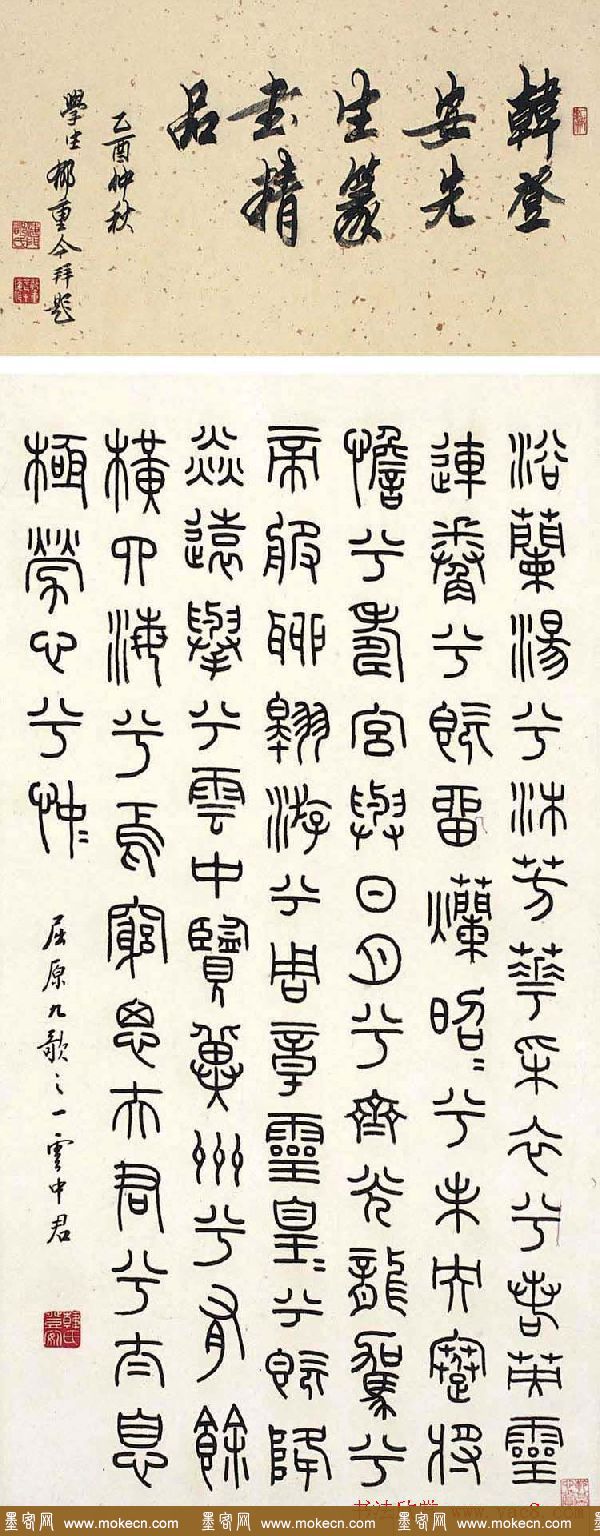 韓登
安先
生篆
書精
品
乙酉仲秋
學生郁重今拜題
浴蘭湯兮沐芳華采衣兮若英靈
連蜷兮既留爛昭〻兮未央蹇將
憺兮壽宮與日月兮齊光龍駕兮
帝服聊翱游兮周章靈皇〻兮既降
猋遠舉兮雲中覽冀州兮有餘
橫四海兮焉窮思夫君兮太息
極勞心兮忡〻
屈原九歌之一雲中君
韓氏登安
书法欣赏 www.yac8.com
墨客网 www.mokecn.com 墨客网 www.mokecn.com 墨客网 www.mokecn.com